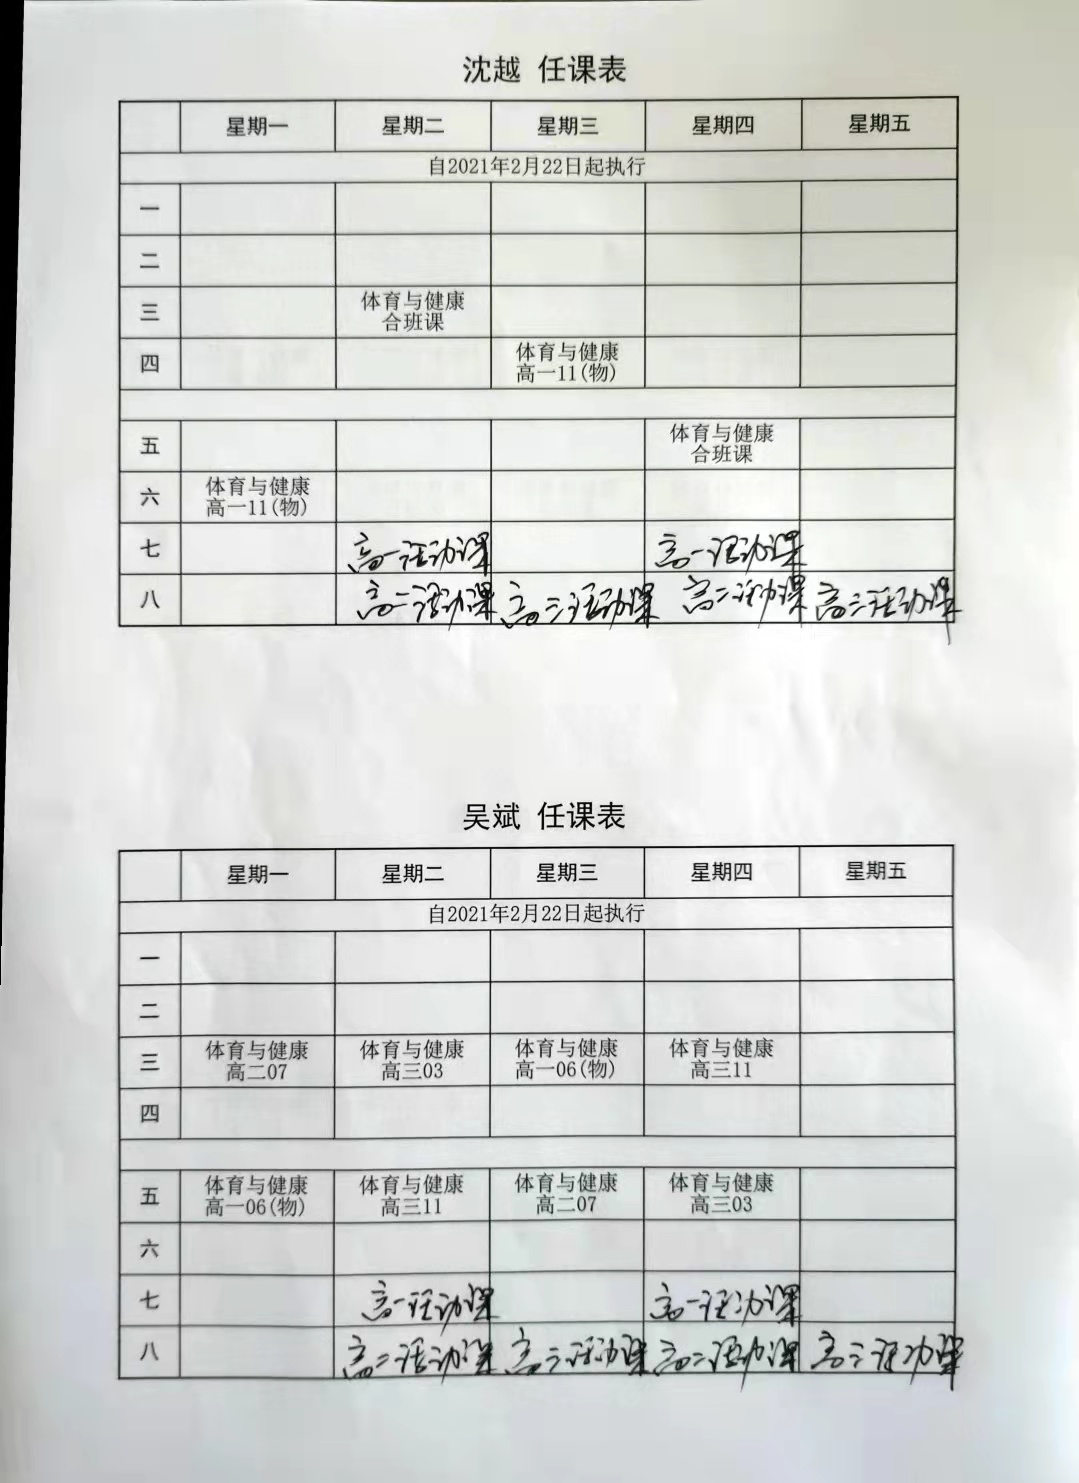 沈越 任课表
星期一 星期二 星期三 星期四 星期五
自2021年2月22日起执行
一
二
三 体育与健康
合班课
四 体育与健康
高一11(物)
五 体育与健康
合班课
六 体育与健康
高一11(物)
七 高一活动课 高一活动课
八 高二活动课 高三活动课 高二活动课 高三活动课
吴斌 任课表
星期一 星期二 星期三 星期四 星期五
自2021年2月22日起执行
一
二
三 体育与健康 体育与健康 体育与健康 体育与健康
高二07 高三03 高一06(物) 高三11
四
五 体育与健康 体育与健康 体育与健康 体育与健康
高一06(物) 高三11 高二07 高三03
六
七 高一活动课 高一活动课
八 高二活动课 高三活动课 高二活动课 高三活动课